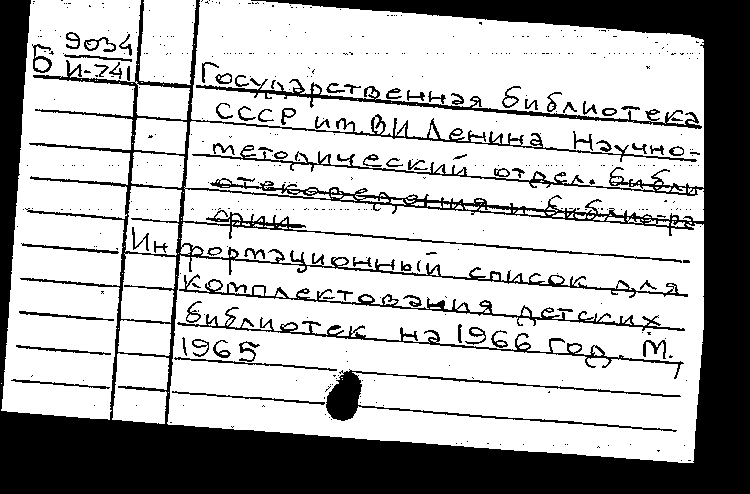 9034
Б И-741
Государственная библиотека
СССР им. В И Ленина. Научно-
методический отдел. библи
отековедения и библиогра
фии
Информационный список для
комплектования детских
библиотек на 1966 год. М.,
1965